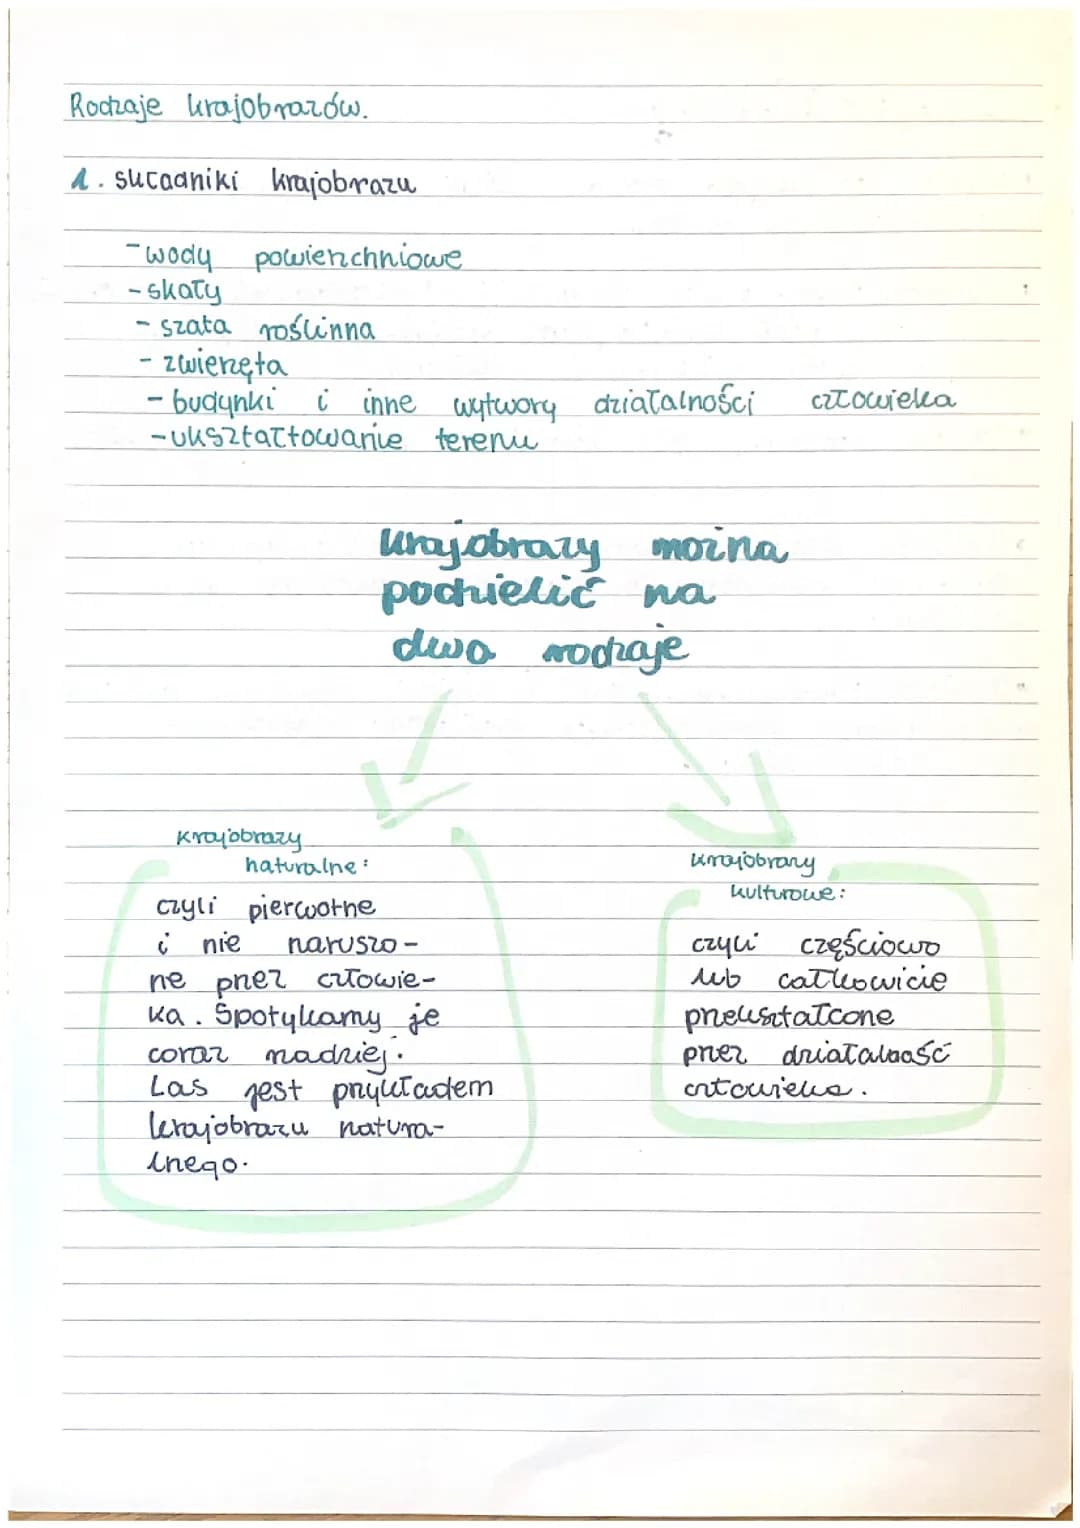 Rodzaje krajobrazów.
1. składniki krajobrazu
- wody powierzchniowe
- skały
- szata roślinna
- zwierzęta
- budynki i inne wytwory działalności człowieka
- ukształtowanie terenu
krajobrazy można
podzielić na
dwa rodzaje
Krajobrazy
naturalne:
czyli pierwotne
i nie naruszo-
ne przez człowie-
ka. Spotykamy je
coraz rzadziej.
Las jest przykładem
krajobrazu natura-
lnego.
krajobrazy
kulturowe:
czyli częściowo
lub całkowicie
przekształcone
przez działalność
człowieka.